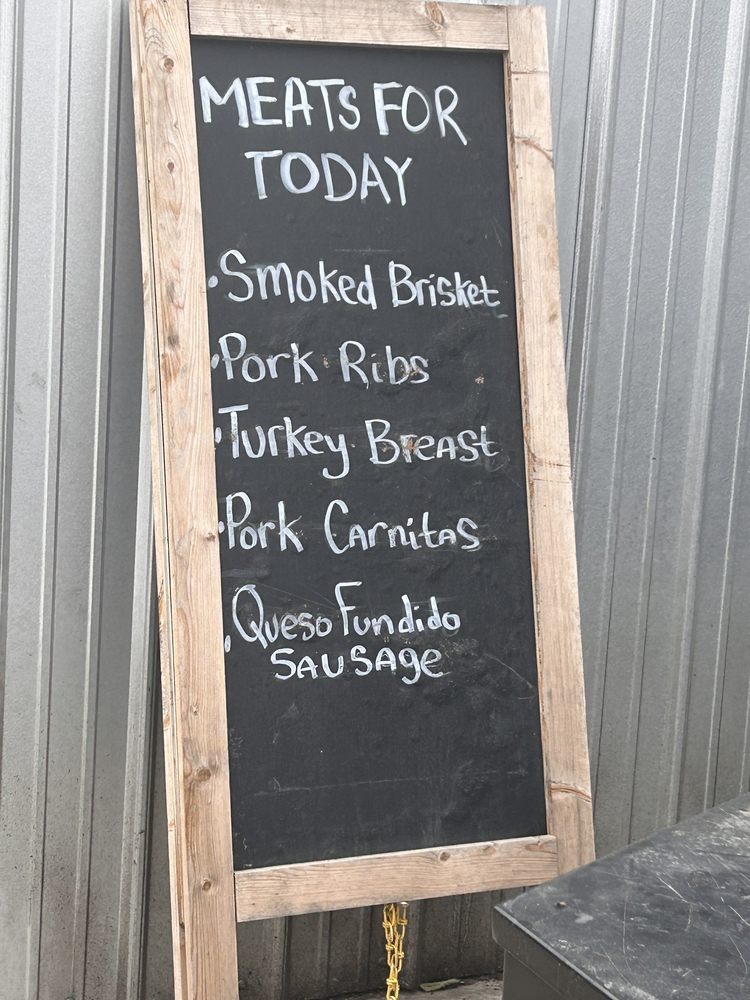 MEATS FOR
TODAY
• Smoked Brisket
• Pork Ribs
• Turkey Breast
• Pork Carnitas
• Queso Fundido
SAUSAge